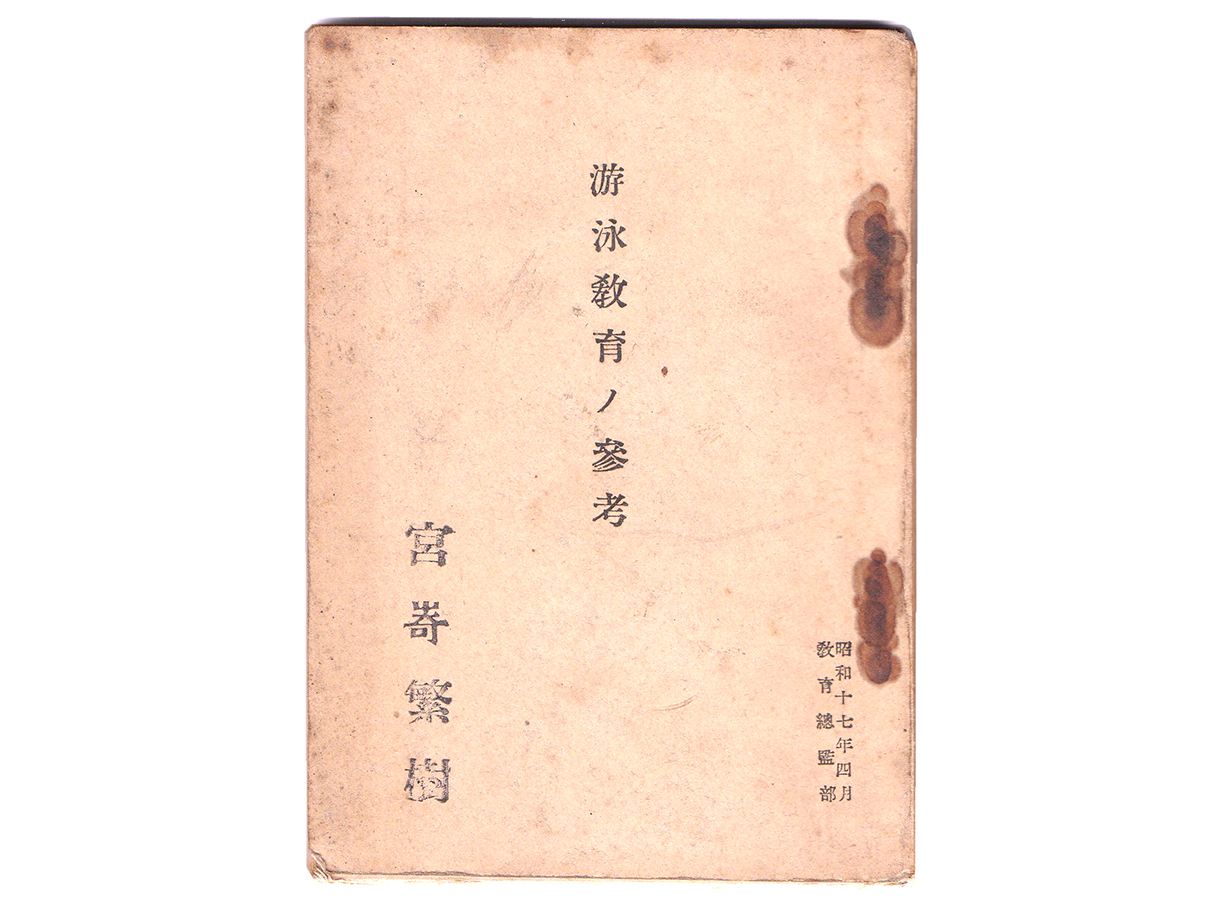 昭和十七年四月
敎育總監部
游泳敎育ノ參考
宮嵜繁樹